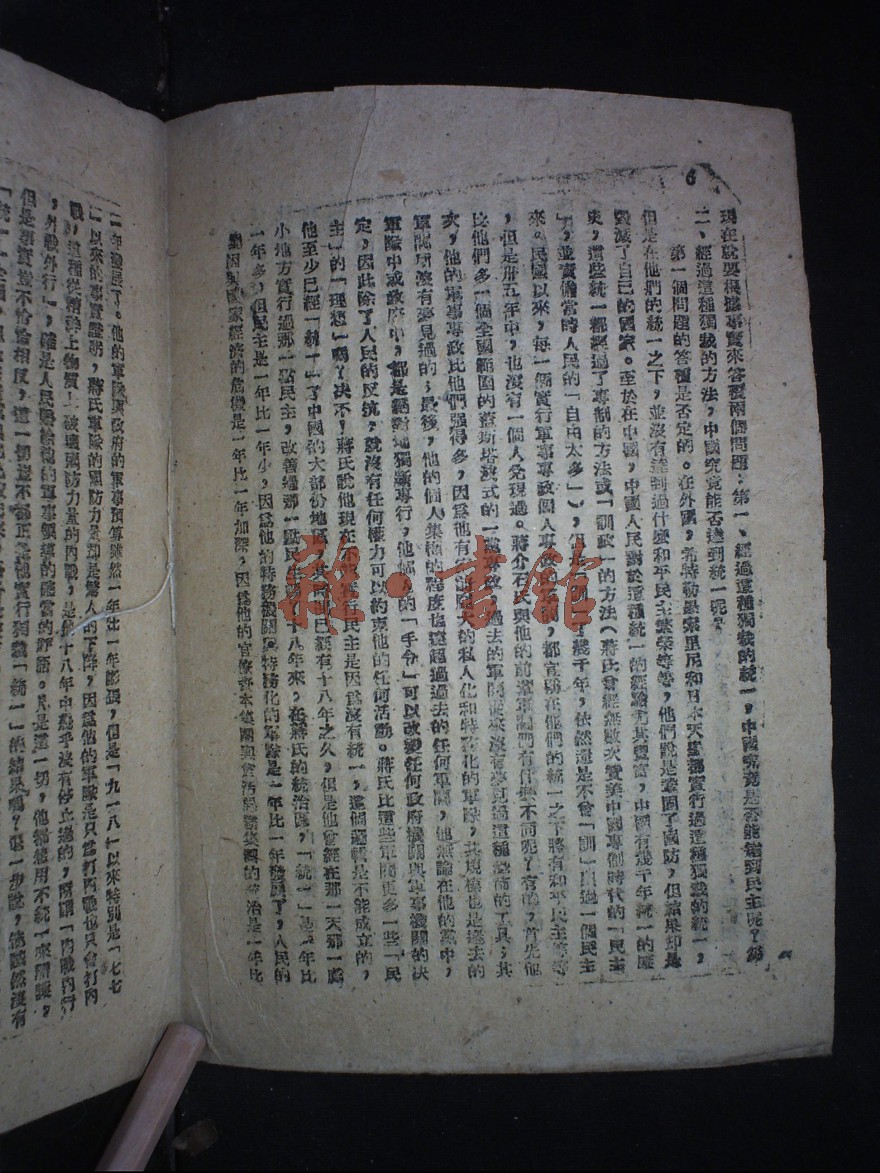 6
現在就要根據事實來答覆兩個問題：第一、經過這種獨裁的統一，中國究竟是否能達到民主呢？第
二、經過這種獨裁的方法，中國究竟能否達到統一呢？
第一個問題的答覆是否定的。在外國，希特勒墨索里尼和日本天皇都實行過這種獨裁的統一，
但是在他們的統一之下，並沒有達到過什麼和平民主繁榮等等，他們說是鞏固了國防，但結果却是
毀滅了自己的國家。至於在中國，中國人民對於這種統一的經驗尤其豐富，中國有幾千年統一的歷
史，這些統一都經過了專制的方法或「訓政」的方法（蔣氏曾經無數次贊美中國專制時代的「民主
」，並責備當時人民的「自由太多」），但是「訓」了幾千年，依然還是不曾「訓」出過一個民主
來。民國以來，每一個實行軍事專政個人專政的軍閥，都宣稱在他們的統一之下將有和平民主等等
，但是卅五年中，也沒有一個人兌現過。蔣介石氏與他的前輩軍閥們有什麼不同呢？有的，首先他
比他們多一個全國範圍的蓋斯塔波式的一黨專政，過去的軍閥從來沒有夢見過這種恐怖的工具；其
次，他的軍事專政比他們強得多，因為他有 的私人化和特務化的軍隊，其規模也是過去的
軍閥所沒有夢見過的；最後，他的個人集權的程度也遠超過過去的任何軍閥，他無論在他的黨中，
軍隊中或政府中，都是絕對地獨斷專行，他 的「手令」可以改變任何政府機關與軍事機關的決
定，因此除了人民的反抗，就沒有任何權力可以約束他的任何活動。蔣氏比這些軍閥更多一些「民
主」的「理想」嗎？決不！蔣氏說他現在不能實行民主是因為沒有統一，這個邏輯是不能成立的，
他至少已經「統一」了中國的大部份地區 已經有十八年之久，但是他曾經在那一天那一處
小地方實行過那一點民主，改善過那一點民生 十八年來，在蔣氏的統治區，「統一」是一年比
一年多，但民主是一年比一年少，因為他的特務機關與特務化的軍隊是一年比一年發展了，人民的
與國家經濟的危機是一年比一年加深，因為他的官僚資本集團與 集團的統治是一年比
一年發展了。他的軍隊與政府的軍事預算雖然一年比一年膨脹，但是「九一八」以來特別是「七七
」以來的事實證明，蔣氏軍隊的國防力量却是驚人的下降，因為他的軍隊是只為打內戰也只會打內
戰，這種從精神上物質上破壞國防力量的內戰，是 十八年中幾乎沒有停止過的，所謂「內戰內行
，外戰外行」，確是人民 給他的軍事領導的確當的評語。 是這一切，他都能用不統一來 ，
但是事實豈不恰恰相反，這一切豈不都正是他實行獨裁「統一」的結果嗎？退一步說，他雖然沒有